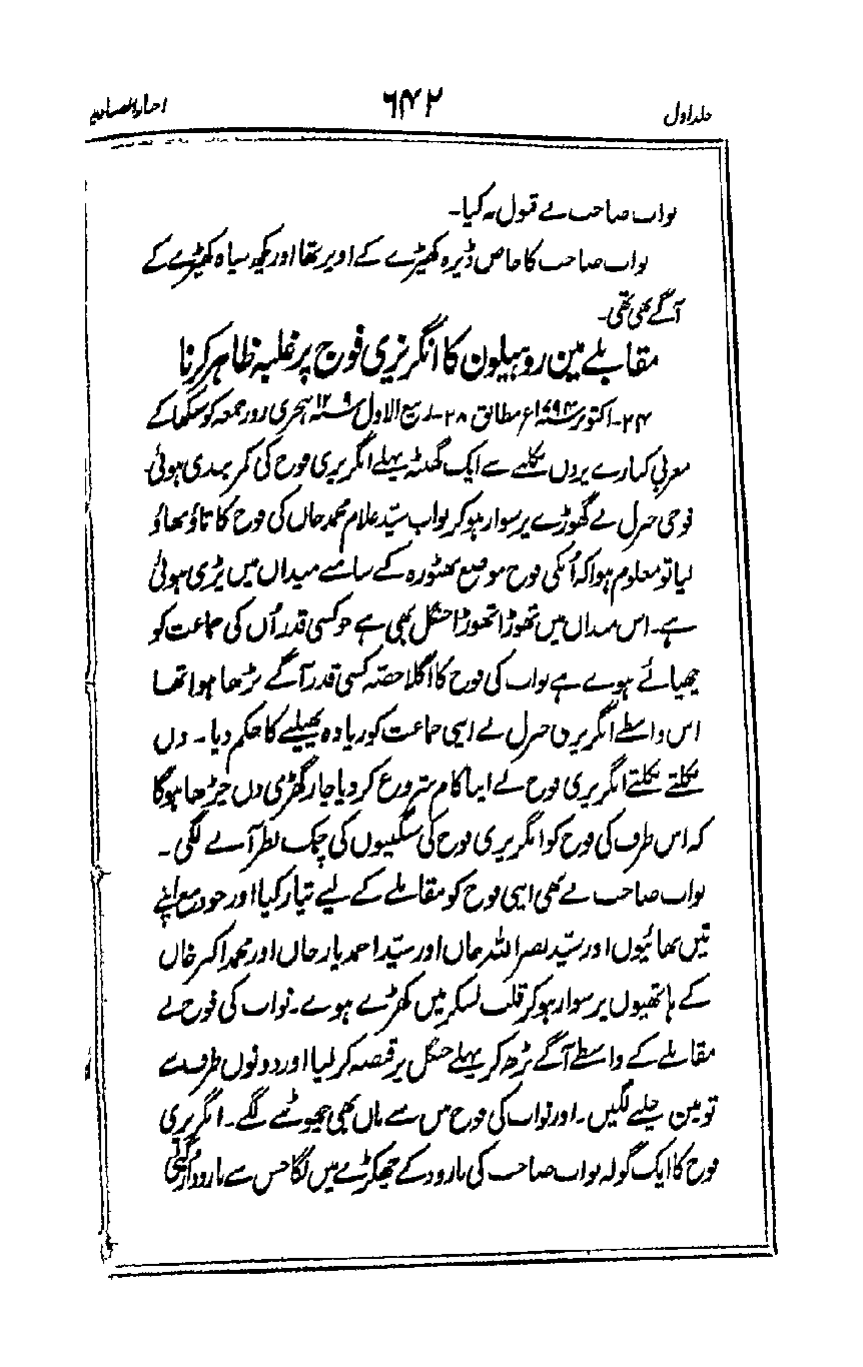 جلد اول ۶۴۲ اخبار الصنادید
نواب صاحب نے قبول نہ کیا۔
نواب صاحب کا خاص ڈیرہ کھیڑے کے اوپر تھا اور کچھ سپاہ کھیڑے کے
آگے بھی تھی۔
مقابلے مین روہیلون کا انگریزی فوج پر غلبہ ظاہر کرنا
۲۴۔ اکتوبر ۱۷۹۴ء مطابق ۲۸۔ ربیع الاول ۱۲۰۹ ہجری روز جمعہ کو سنکھا کے
مغربی کنارے پر دن نکلنے سے ایک گھنٹہ پہلے انگریزی فوج کی کمر بندی ہوئی
فوجی جنرل نے گھوڑے پر سوار ہوکر نواب سیّد غلام محمد خاں کی فوج کا تاؤ بھاؤ
لیا تو معلوم ہوا کہ اُنکی فوج موضع بھٹورہ کے سامنے میدان میں پڑی ہوئی
ہے۔ اس میدان میں تھوڑا تھوڑا جنگل بھی ہے جو کسی قدر اُن کی جماعت کو
چھپائے ہوے ہے نواب کی فوج کا اگلا حصّہ کسی قدر آگے بڑھا ہوا تھا
اس واسطے انگریزی جنرل نے اپنی جماعت کو زیادہ پھیلنے کا حکم دیا۔ دن
نکلتے نکلتے انگریزی فوج نے اپنا کام شروع کر دیا چار گھڑی دن چڑھا ہوگا
کہ اس طرف کی فوج کو انگریزی فوج کی سنگینوں کی چمک نظر آنے لگی۔
نواب صاحب نے بھی اپنی فوج کو مقابلے کے لیے تیار کیا اور خود مع اپنے
تین بھائیوں اور سیّد نصر اللہ خاں اور سیّد احمد یار خاں اور محمد اکبر خاں
کے ہاتھیوں پر سوار ہوکر قلب لشکر میں کھڑے ہوے۔ نواب کی فوج نے
مقابلے کے واسطے آگے بڑھ کر پہلے جنگل پر قبضہ کر لیا اور دونوں طرف سے
توپین چلنے لگیں۔ اور نواب کی فوج میں سے بان بھی چھوٹنے لگے۔ انگریزی
فوج کا ایک گولہ نواب صاحب کی بارود کے چھکڑے میں لگا جس سے بارود اُڑ گئی